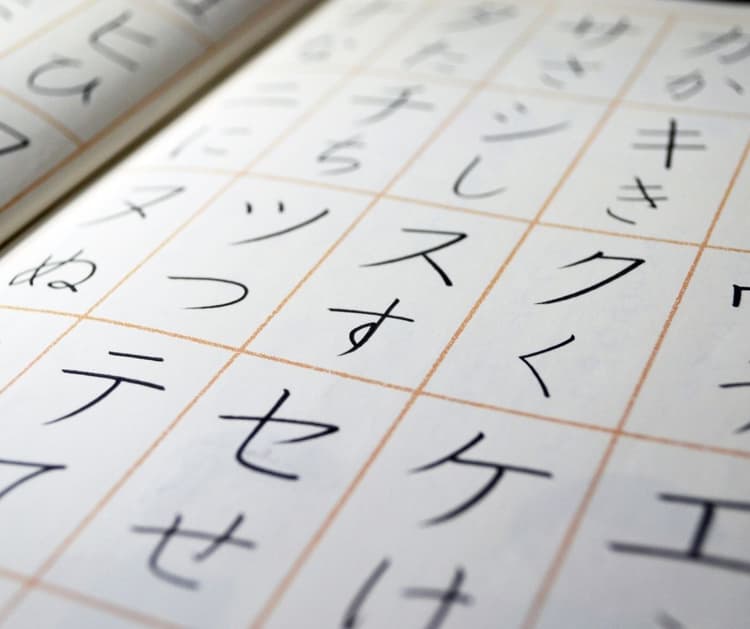 ヒ
ひ
ナ タ サ カ
な た さ か
ニ チ シ キ
に ち し き
ヌ ツ ス ク
ぬ つ す く
テ セ ケ エ
て せ け